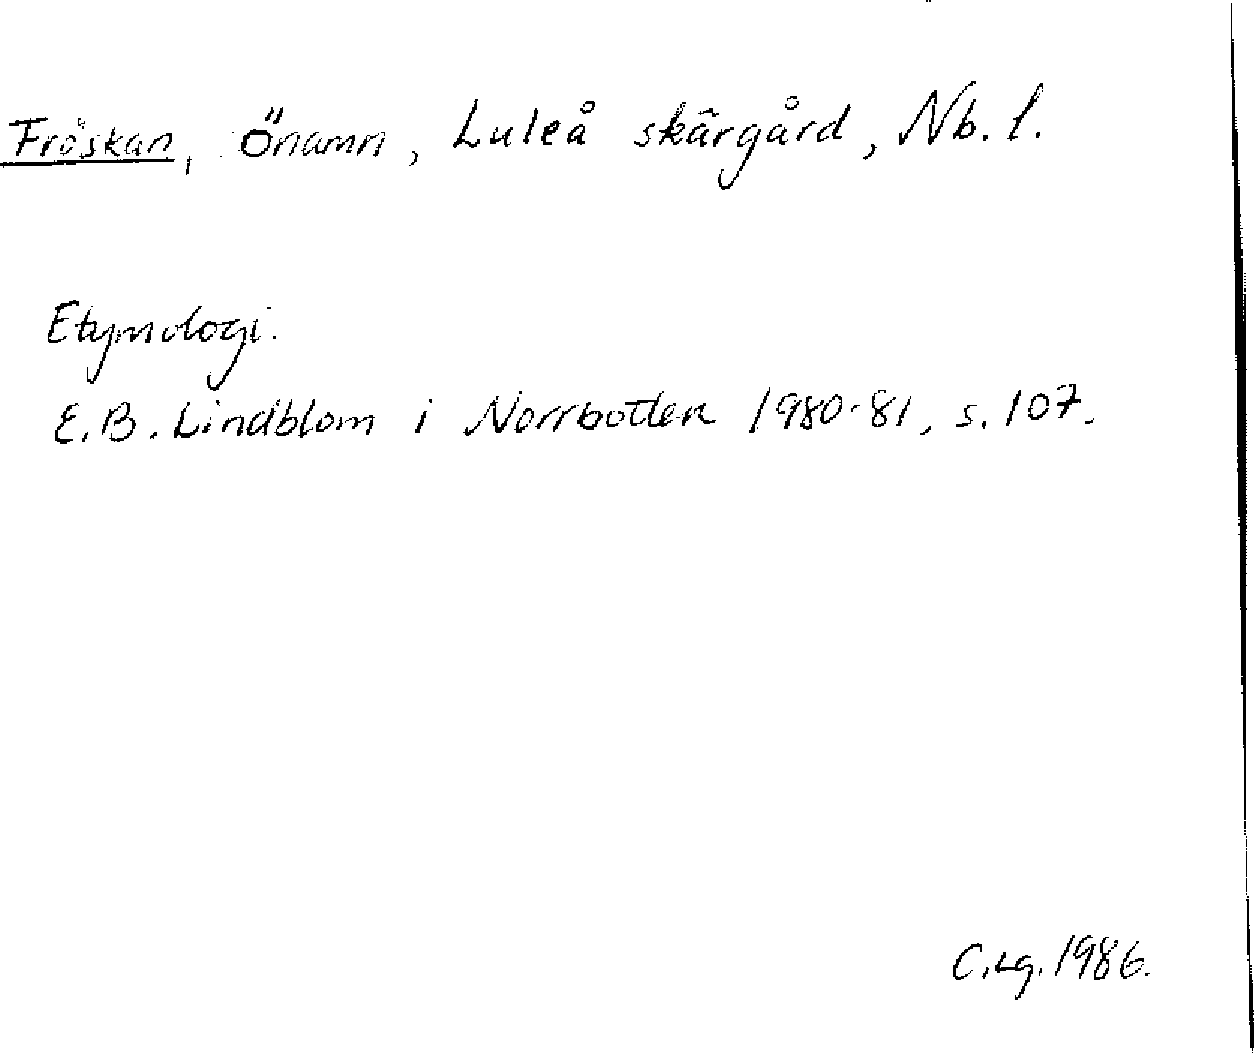 Fröskan, önamn, Luleå skärgård, Nb. l.
Etymologi.
E. B. Lindblom i Norrbotten 1980-81, s. 107.
C. Lg. 1986.